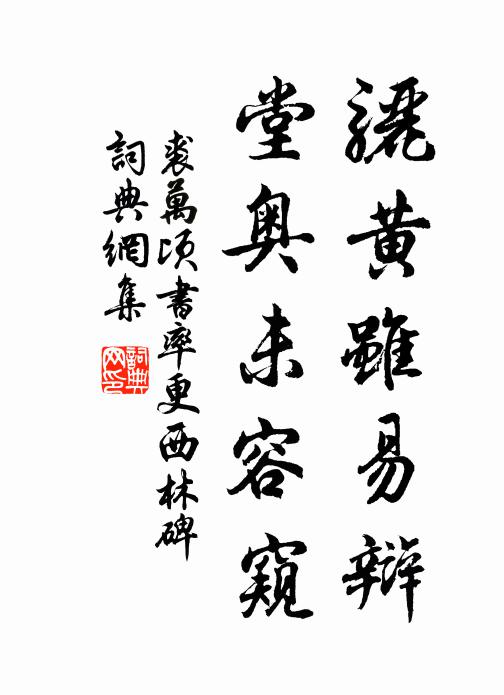 驪黃雖易辯
堂奧未容窺
裘萬頃書率更西林碑
詞典網集
詞典网印